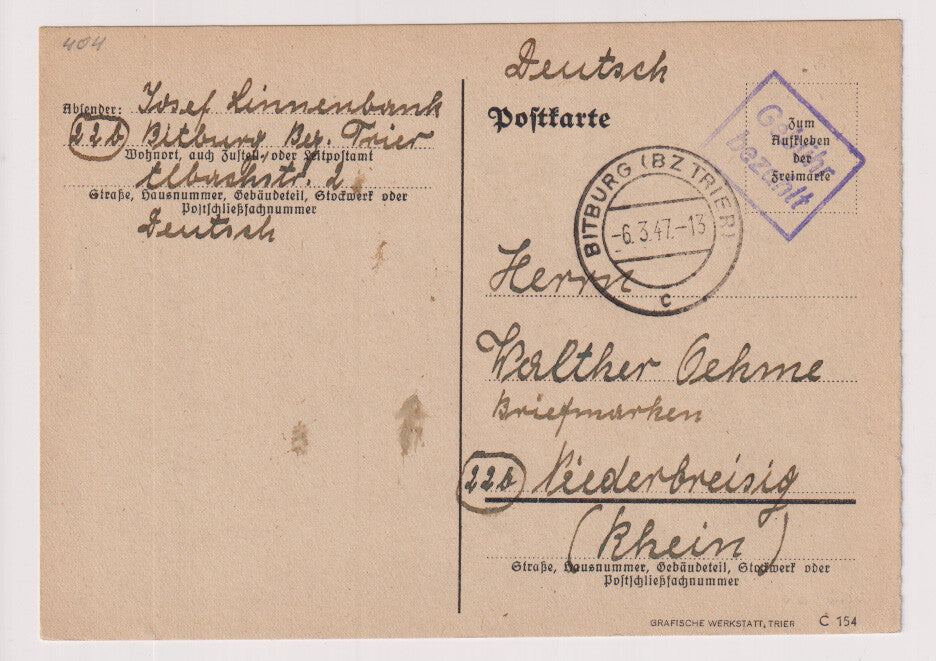 404
Absender: Josef Linnenbank
22b Bitburg Bez. Trier
Wohnort, auch Zustell- oder Leitpostamt
Albachstr. 2
Straße, Hausnummer, Gebäudeteil, Stockwerk oder
Postschließfachnummer
Deutsch
Deutsch
Postkarte
Gebühr
bezahlt
Zum
Aufkleben
der
Freimarke
BITBURG (BZ TRIER)
-6.3.47.-13
c
Herrn
Walther Oehme
Briefmarken
22b Niederbreisig
(Rhein)
Straße, Hausnummer, Gebäudeteil, Stockwerk oder
Postschließfachnummer
GRAFISCHE WERKSTATT, TRIER C 154